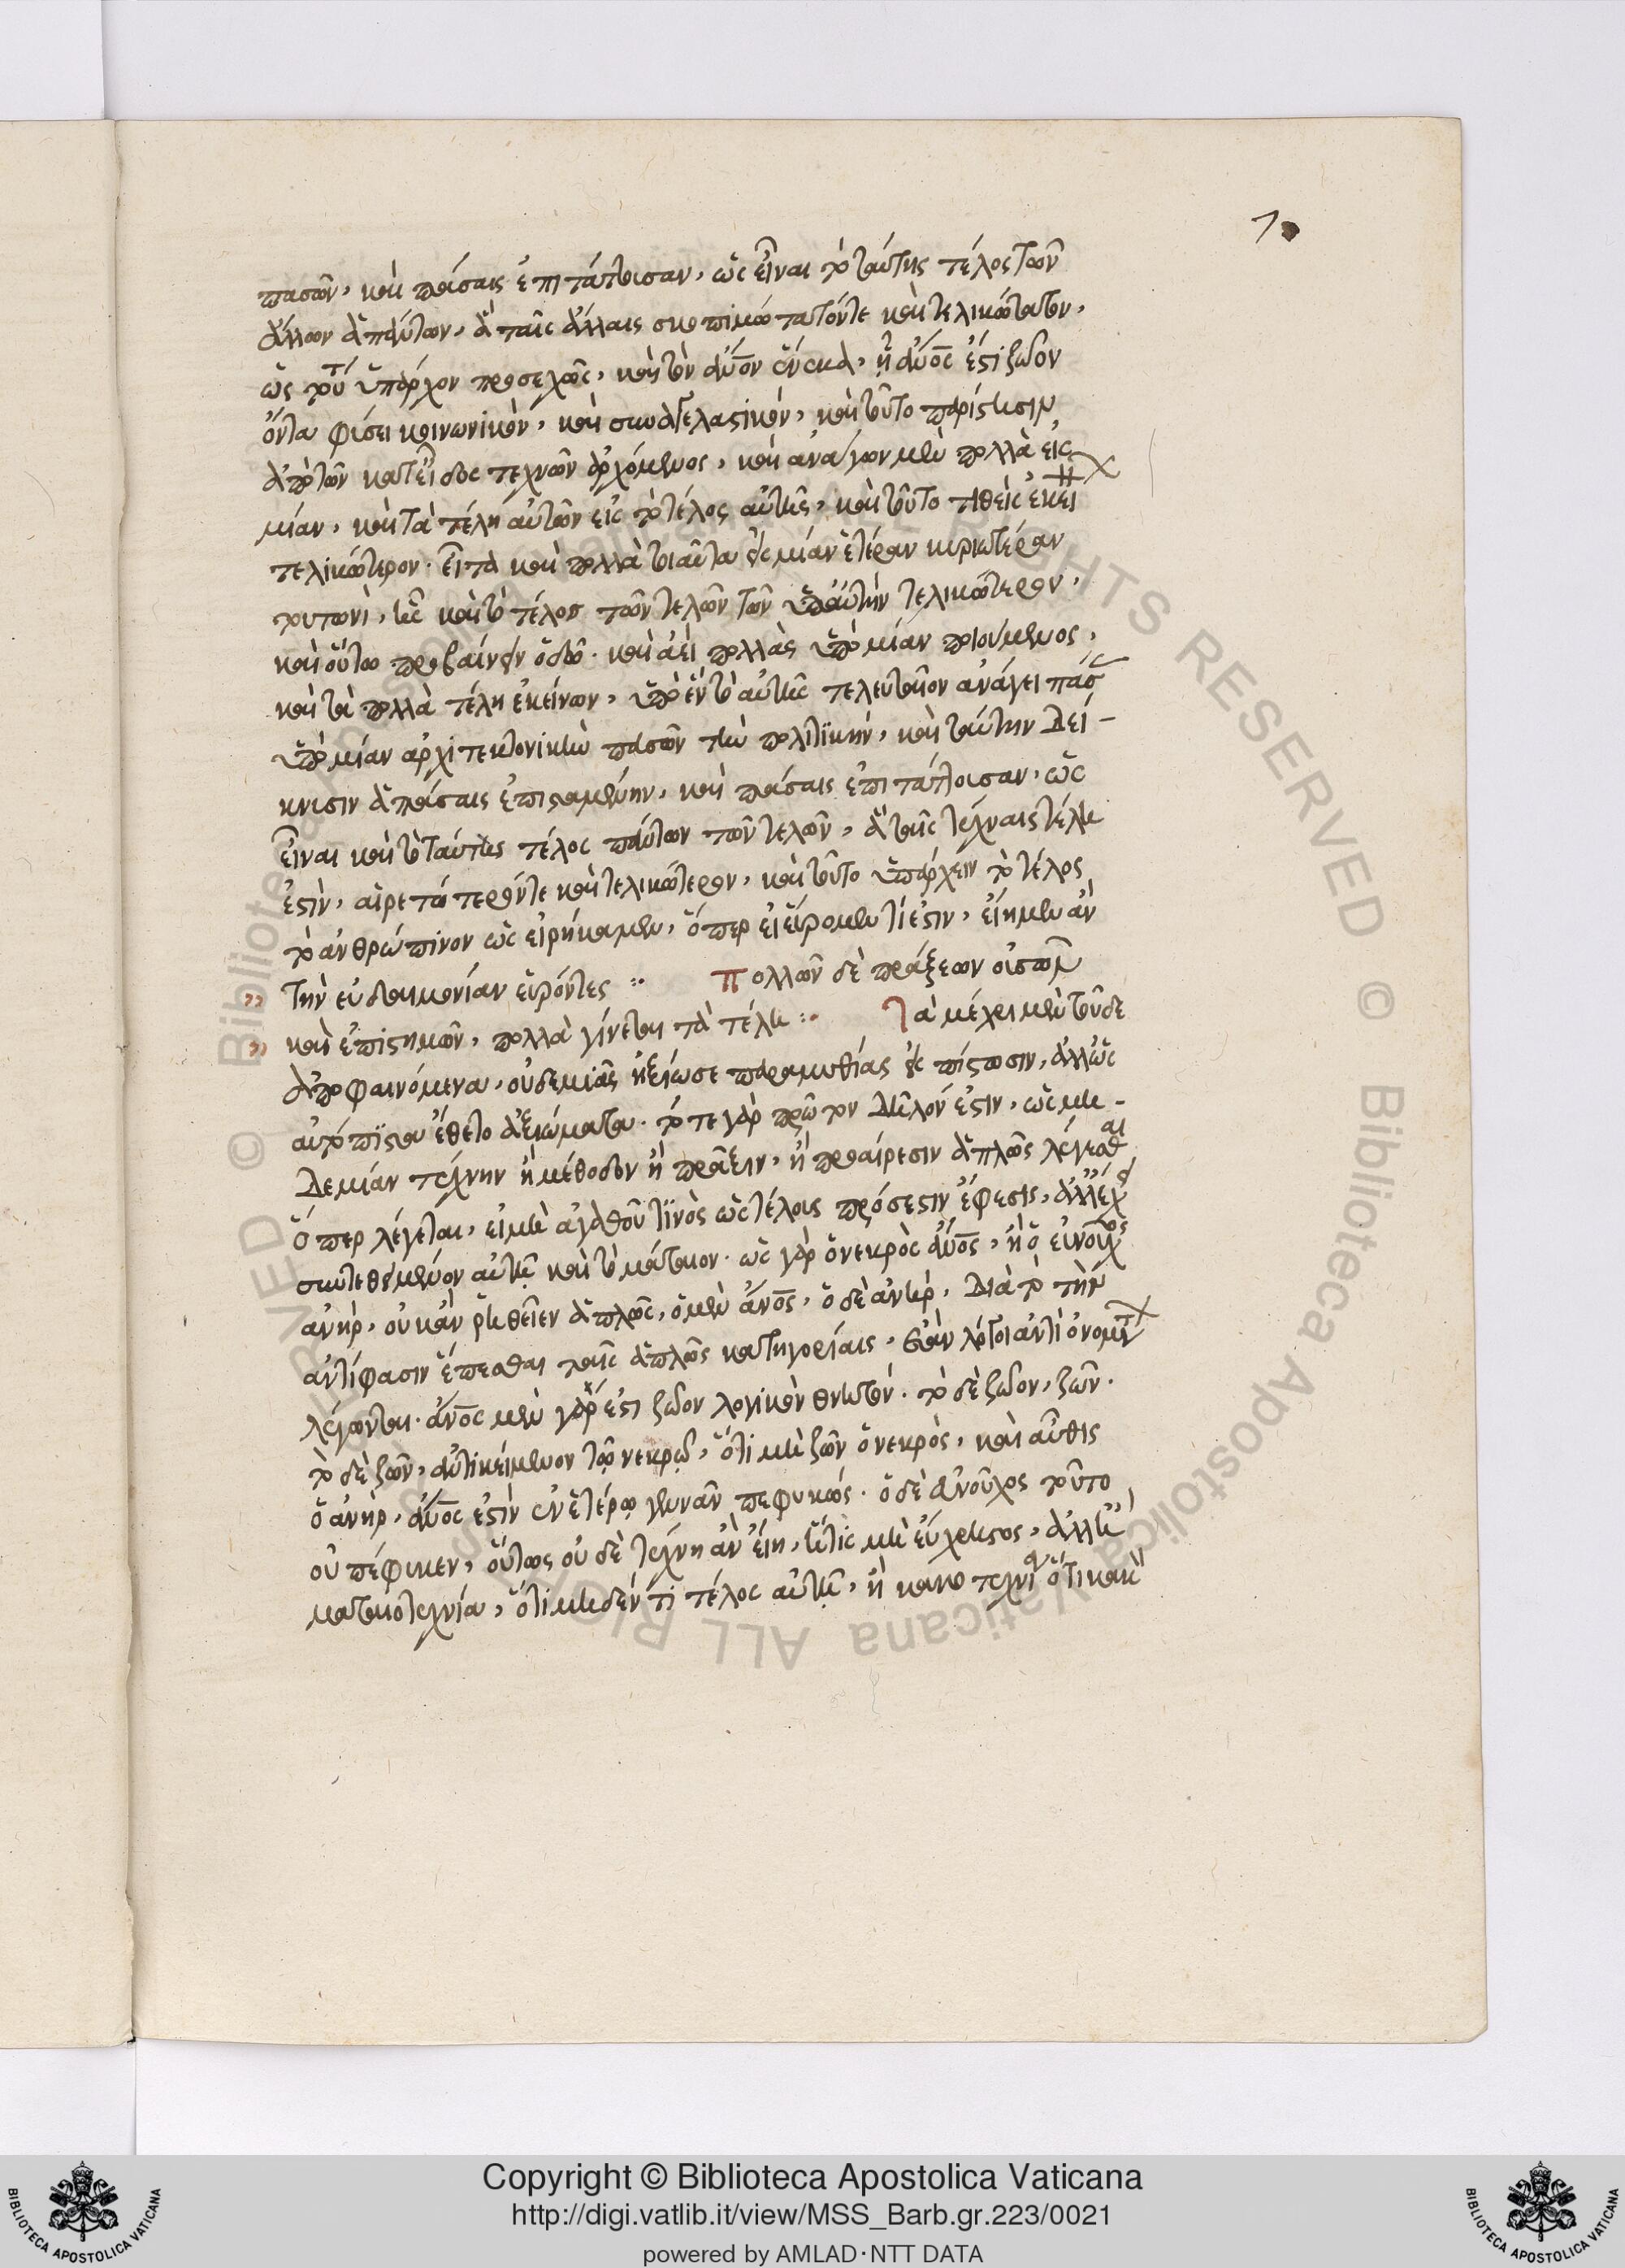 7
πασῶν, καὶ πάσαις ἐπιτάττουσαν, ὡς εἶναι τὸ ταύτης τέλος τῶν
ἄλλων ἁπάντων, ἃ ταῖς ἄλλαις σκοπιμώτατόν τε καὶ τελικώτατον,
ὡς τοῦ ὑπάρχον προσεχῶς, καὶ τὸν ἄνον ἕνεκα, ᾗ ἄνος ἐστὶ ζῶον
ὄντα φύσει κοινωνικὸν, καὶ συναγελαστικόν, καὶ τοῦτο παρίστησιν
ἀπὸ τῶν κατεῖδος τεχνῶν ἀρχόμενος, καὶ ἀνάγων μὲν πολλὰ εἰς
μίαν, καὶ τὰ τέλη αὐτῶν εἰς τὸ τέλος αὐτῆς, καὶ τοῦτο τιθεὶς ἐκεί
τελικώτερον. εἶτα καὶ πολλὰ τοιαῦτα εἰς μίαν ἑτέραν κυριωτέραν
τουτωνὶ, ἧς καὶ τὸ τέλος τῶν τελῶν τῶν ὑπαὐτὴν τελικώτερον,
καὶ οὕτω προβαίνειν ὁδῷ. καὶ ἀεὶ πολλὰς ὑπὸ μίαν ποιούμενος,
καὶ τὰ πολλὰ τέλη ἐκείνων, ὑπὸ ἓν τὸ αὐτῆς τελευταῖον ἀνάγει πάσ
ὑπὸ μίαν ἀρχιτεκτονικὴν πασῶν τὴν πολιτικὴν, καὶ ταύτην δεί-
κνυσιν ἁπάσαις ἐπισταμένην, καὶ πάσαις ἐπιτάττουσαν, ὡς
εἶναι καὶ τὸ ταύτης τέλος πάντων τῶν τελῶν, ἃ ταῖς τέχναις τέλη
ἐστὶν, αἱρετώτερόν τε καὶ τελικώτερον, καὶ τοῦτο ὑπάρχειν τὸ τέλος
τὸ ἀνθρώπινον ὡς εἰρήκαμεν, ὅπερ εἰ εὕρομεν τί ἐστιν, εἴημεν ἂν
τὴν εὐδαιμονίαν εὑρόντες :· Πολλῶν δὲ πράξεων οὐσῶν
καὶ ἐπιστημῶν, πολλὰ γίνεται τὰ τέλη :· Τὰ μέχρι μὲν τοῦδε
ἀποφαινόμενα, οὐδεμιᾶς ἠξίωσε παραμυθίας εἰς πίστωσιν, ἀλλὡς
αὐτόπιστα ἔθετο ἀξιώματα. τό τε γὰρ πρῶτον δῆλόν ἐστιν, ὡς μη-
δεμίαν τέχνην ἢ μέθοδον ἢ πρᾶξιν, ἢ προαίρεσιν ἁπλῶς λέγεσθαι
ὅπερ λέγεται, εἰ μὴ ἀγαθοῦ τινὸς ὡς τέλους πρόσεστιν ἔφεσις, ἀλλ' ἔχει
συντεθειμένον αὐτῇ καὶ τὸ μάταιον. ὡς γὰρ ὁ νεκρὸς ἄνος, ἢ ὁ εὐνοῦχος
ἀνὴρ, οὐκ ἂν ῥηθεῖεν ἁπλῶς, ὁ μὲν ἄνος, ὁ δὲ ἀνὴρ, διὰ τὸ τὴν
ἀντίφασιν ἕπεσθαι ταῖς ἁπλῶς κατηγορίαις, ἐὰν λόγοι ἀντὶ ὀνομάτ
λέγωνται. ἄνος μὲν γάρ ἐστι ζῶον λογικὸν θνητόν. τὸ δὲ ζῶον, ζῶν.
τὸ δὲ ζῶν, ἀντικείμενον τῷ νεκρῷ, ὅτι μὴ ζῶν ὁ νεκρὸς, καὶ αὖθις
ὁ ἀνὴρ, ἄνος ἐστὶν ἐν ἑτέρῳ γεννᾶν πεφυκώς. ὁ δὲ εὐνοῦχος τοῦτο
οὐ πέφυκεν, οὕτως οὐδὲ τέχνη ἂν εἴη, ἥτις μὴ εὔχρηστος, ἀλλ' ἢ
ματαιοτεχνία, ὅτι μηδέν τι τέλος αὐτῇ, ἢ κακοτεχνία ὅτι κακὸ
Copyright © Biblioteca Apostolica Vaticana
http://digi.vatlib.it/view/MSS_Barb.gr.223/0021
powered by AMLAD·NTT DATA